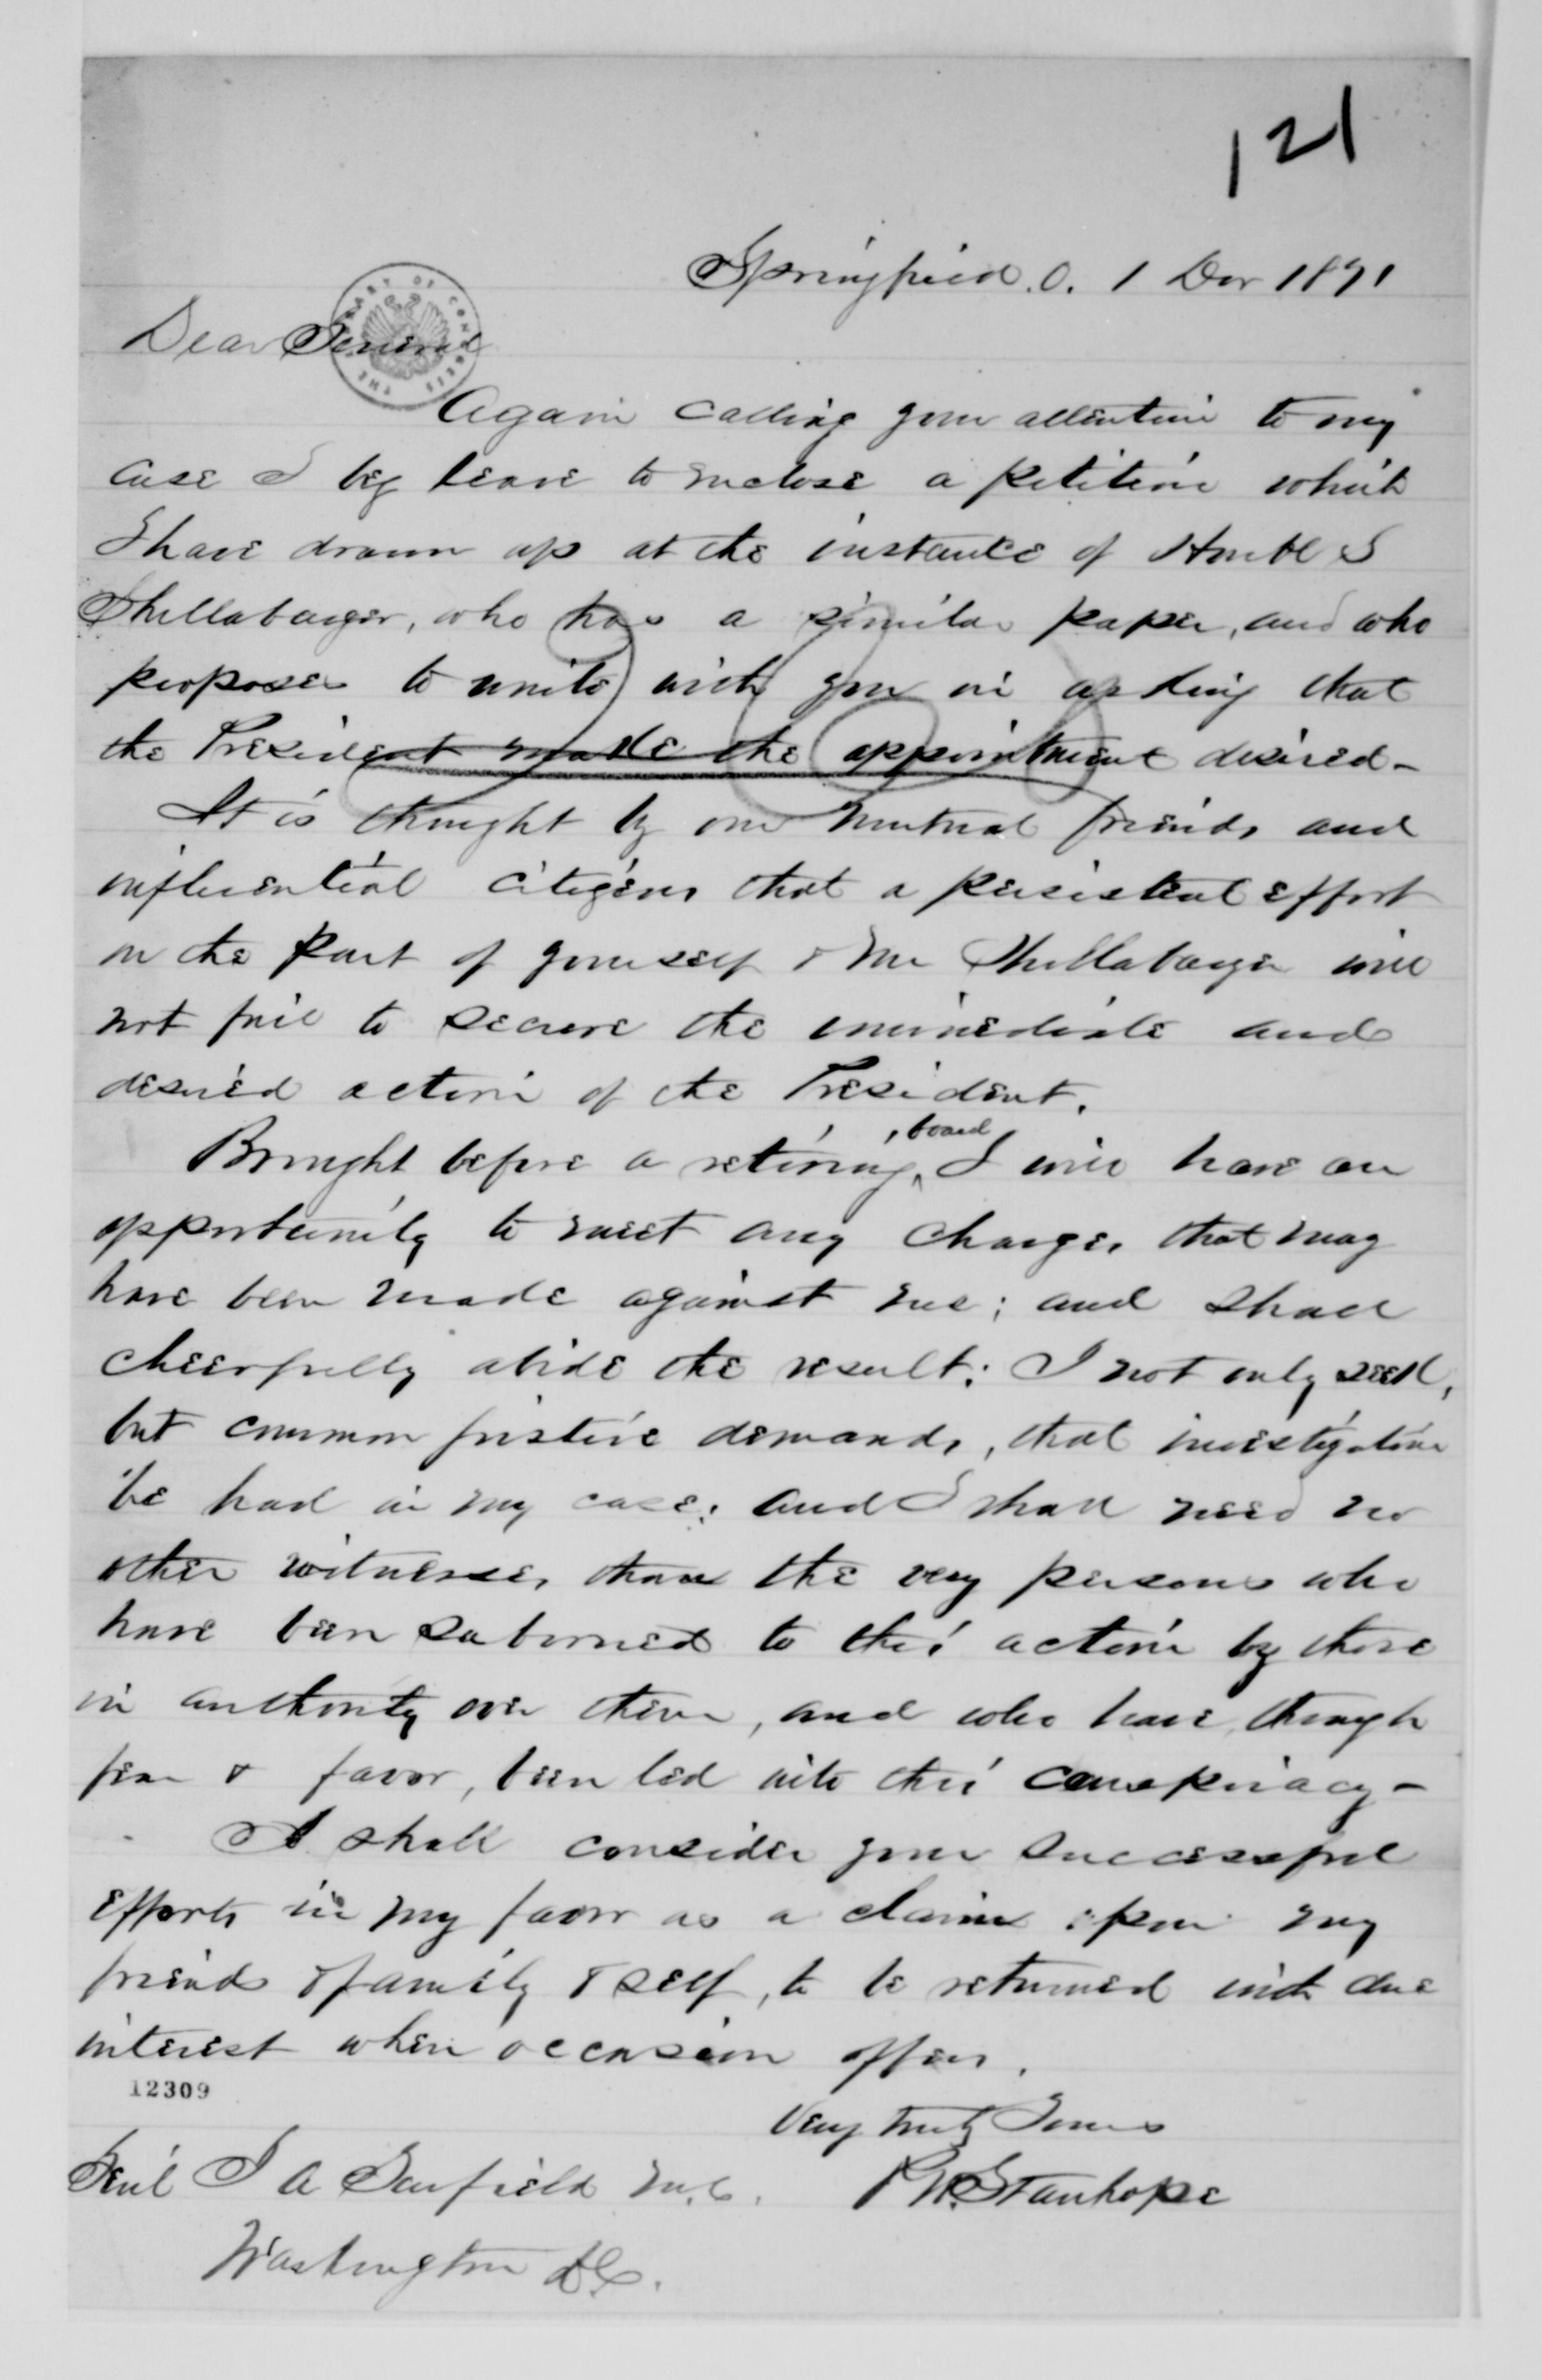 121
Springfield. O. 1 Dec 1871
Dear General
Again calling your attention to my
case I beg leave to enclose a petition which
I have drawn up at the instance of Honbl S
Shellabarger, who has a similar paper, and who
proposes to unite with you in asking that
the President make the appointment desired -
It is thought by our mutual friends and
influential citizens that a persistent effort
on the part of yourself & Mr Shellabarger will
not fail to secure the immediate and
desired action of the President.
Brought before a retiring board I will have an
opportunity to meet any charges that may
have been made against me; and shall
cheerfully abide the result: I not only seek,
but common justice demands, that investigation
be had in my case: and I shall need no
other witnesses than the very persons who
have been suborned to this action by those
in authority over them, and who have, through
fear & favor, been led into this conspiracy -
I shall consider your successful
efforts in my favor as a claim upon my
friends & family & self, to be returned with due
interest when occasion offers.
12309
Very truly Yours
P W Stanhope
Genl J A Garfield M.C.
Washington DC.
THE LIBRARY OF CONGRESS